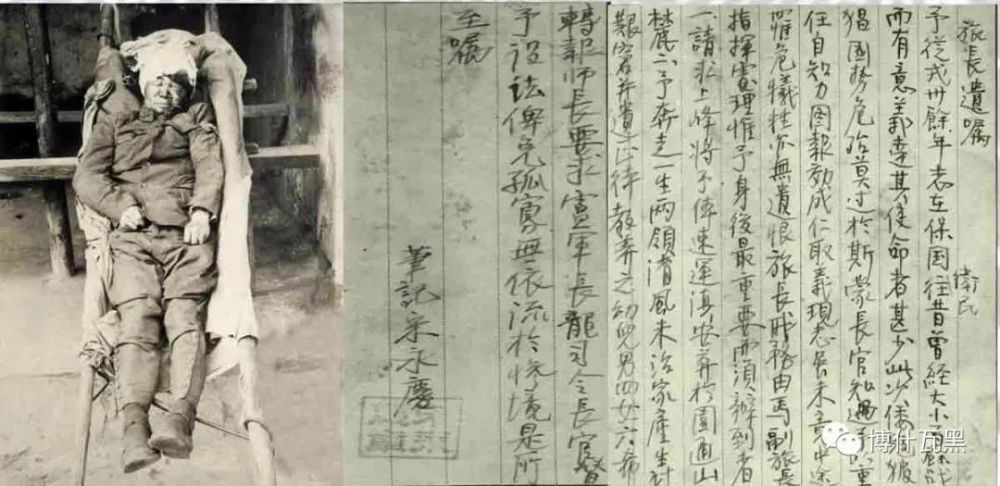 旅長遺嘱
予從戎卅餘年志在保国衛民往昔曾経大小百餘战
而有意義達其使命者甚少此次倭
猖國势危殆莫过於斯蒙長官知遇重
任自知力图報効成仁取義現志尚未竟中途
罹危犧牲亦無遺恨旅長职務由馬副旅長
指揮處理惟予身後最重要而須辦到者
一請求上峰將予体速運滇安葬於圓通山
麓二予奔走一生两領清風未治家產生計
艱窘并遺下待教养之幼兒男四女六希
轉報师長要求盧軍長龍司令長官督
予设法俾免孤寡無依流於境是所
至嘱
筆記宋永慶
博什瓦黑